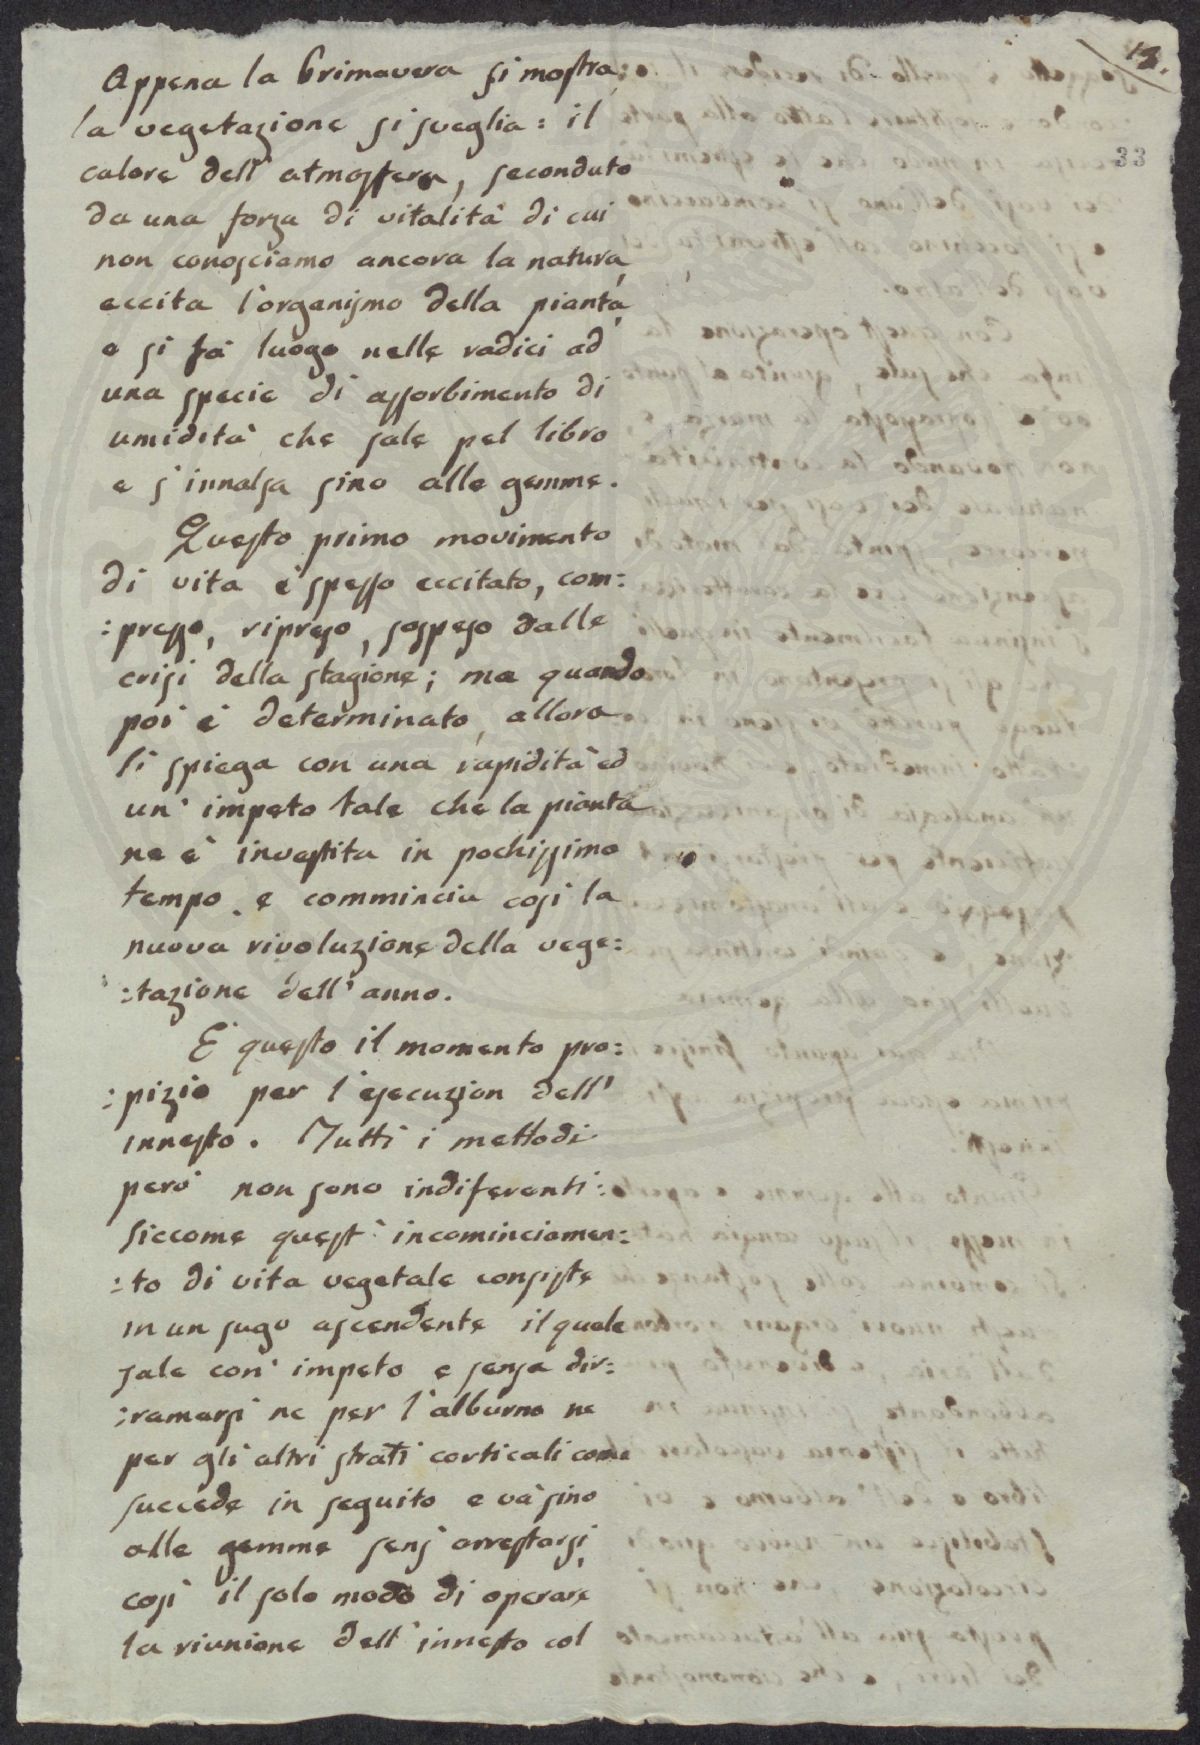 13.
33
Appena la primavera si mostra,
la vegetazione si sveglia: il
calore dell'atmosfera, secondato
da una forza di vitalità di cui
non conosciamo ancora la natura,
eccita l'organismo della pianta,
e si fà luogo nelle radici ad
una specie di assorbimento di
umidità che sale pel libro
e s'innalsa sino alle gemme.
Questo primo movimento
di vita è spesso eccitato, com:
:presso, ripreso, sospeso dalle
crisi della stagione; ma quando
poi è determinato, allora
si spiega con una rapidità ed
un' impeto tale che la pianta
ne è investita in pochissimo
tempo, e commincia così la
nuova rivoluzione della vege:
:tazione dell'anno.
E' questo il momento pro:
:pizio per l'esecuzion dell'
innesto. Tutti i mettodi
però non sono indiferenti:
siccome quest' incominciamen:
:to di vita vegetale consiste
in un sugo ascendente il quale
sale con' impeto e sensa dir:
:ramarsi ne per l'alburno ne
per gli altri strati corticali come
succede in seguito e và sino
alle gemme sens' arrestarsi,
così il solo modo di operare
la riunione dell'innesto col